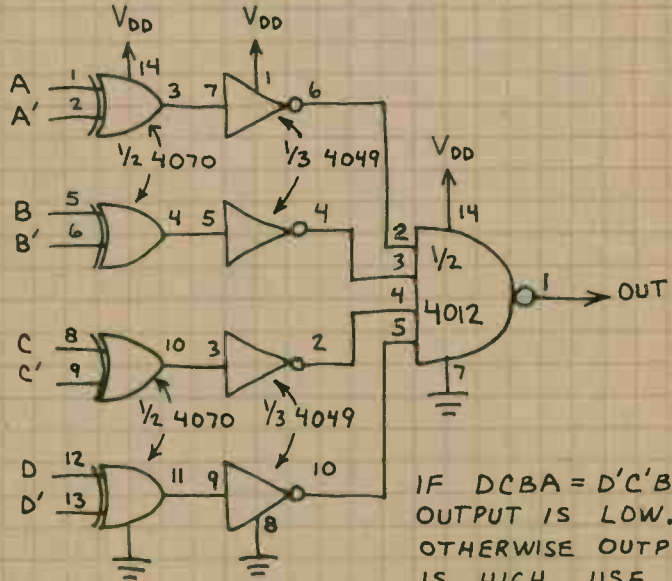 VDD
VDD
14
1
A 1
A' 2
3 7
6
1/2 4070
1/3 4049
VDD
14
B 5
B' 6
4 5
4
2
3
1/2
4
4012
5
1
OUT
7
C 8
C' 9
10 3
2
1/2 4070
1/3 4049
D 12
D' 13
11 9
10
8
IF DCBA = D'C'B
OUTPUT IS LOW.
OTHERWISE OUTP
IS HIGH. USE